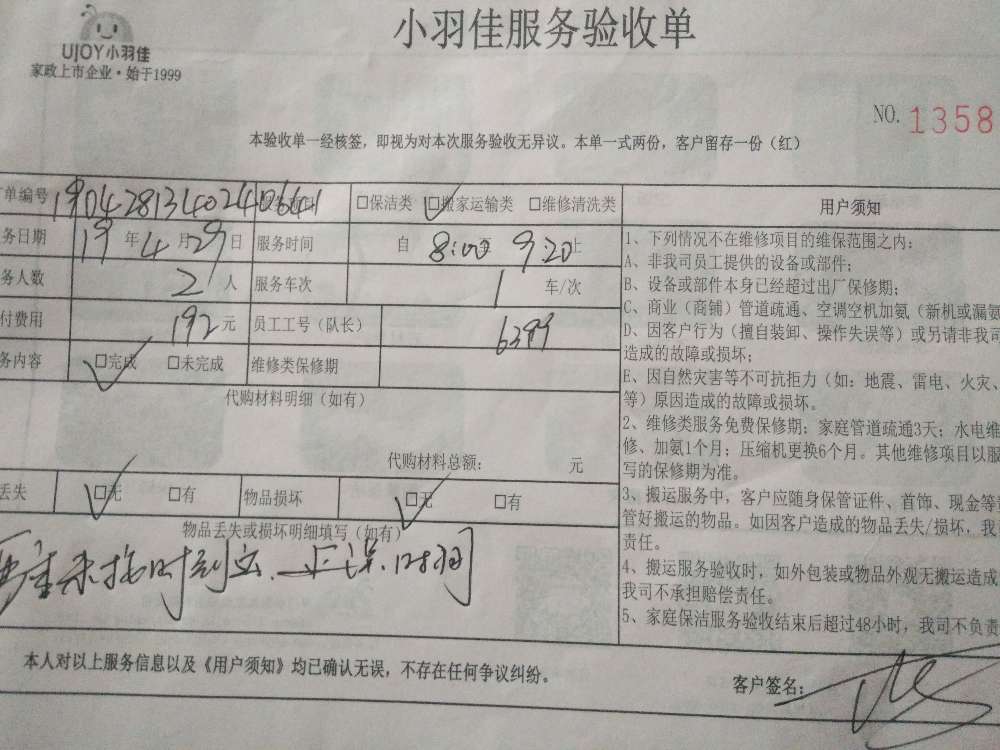 UJOY小羽佳
家政上市企业·始于1999
小羽佳服务验收单
NO. 1358
本验收单一经核签，即视为对本次服务验收无异议。本单一式两份，客户留存一份（红）
单编号 190428134024 0641 □保洁类 □搬家运输类 □维修清洗类
务日期 19年4月29日 服务时间 自 8:00 9:20 止
务人数 2人 服务车次 1 车/次
付费用 192元 员工工号（队长） 6399
务内容 □完成 □未完成 维修类保修期
代购材料明细（如有）
代购材料总额： 元
丢失 □无 □有 物品损坏 □无 □有
物品丢失或损坏明细填写（如有）
未按时到 时间
用户须知
1、下列情况不在维修项目的维保范围之内：
A、非我司员工提供的设备或部件；
B、设备或部件本身已经超过出厂保修期；
C、商业（商铺）管道疏通、空调空机加氨（新机或漏氨
D、因客户行为（擅自装卸、操作失误等）或另请非我司
造成的故障或损坏；
E、因自然灾害等不可抗拒力（如：地震、雷电、火灾、
等）原因造成的故障或损坏。
2、维修类服务免费保修期：家庭管道疏通3天；水电维
修、加氨1个月；压缩机更换6个月。其他维修项目以服
写的保修期为准。
3、搬运服务中，客户应随身保管证件、首饰、现金等
管好搬运的物品。如因客户造成的物品丢失/损坏，我
责任。
4、搬运服务验收时，如外包装或物品外观无搬运造成
我司不承担赔偿责任。
5、家庭保洁服务验收结束后超过48小时，我司不负责
本人对以上服务信息以及《用户须知》均已确认无误，不存在任何争议纠纷。
客户签名：